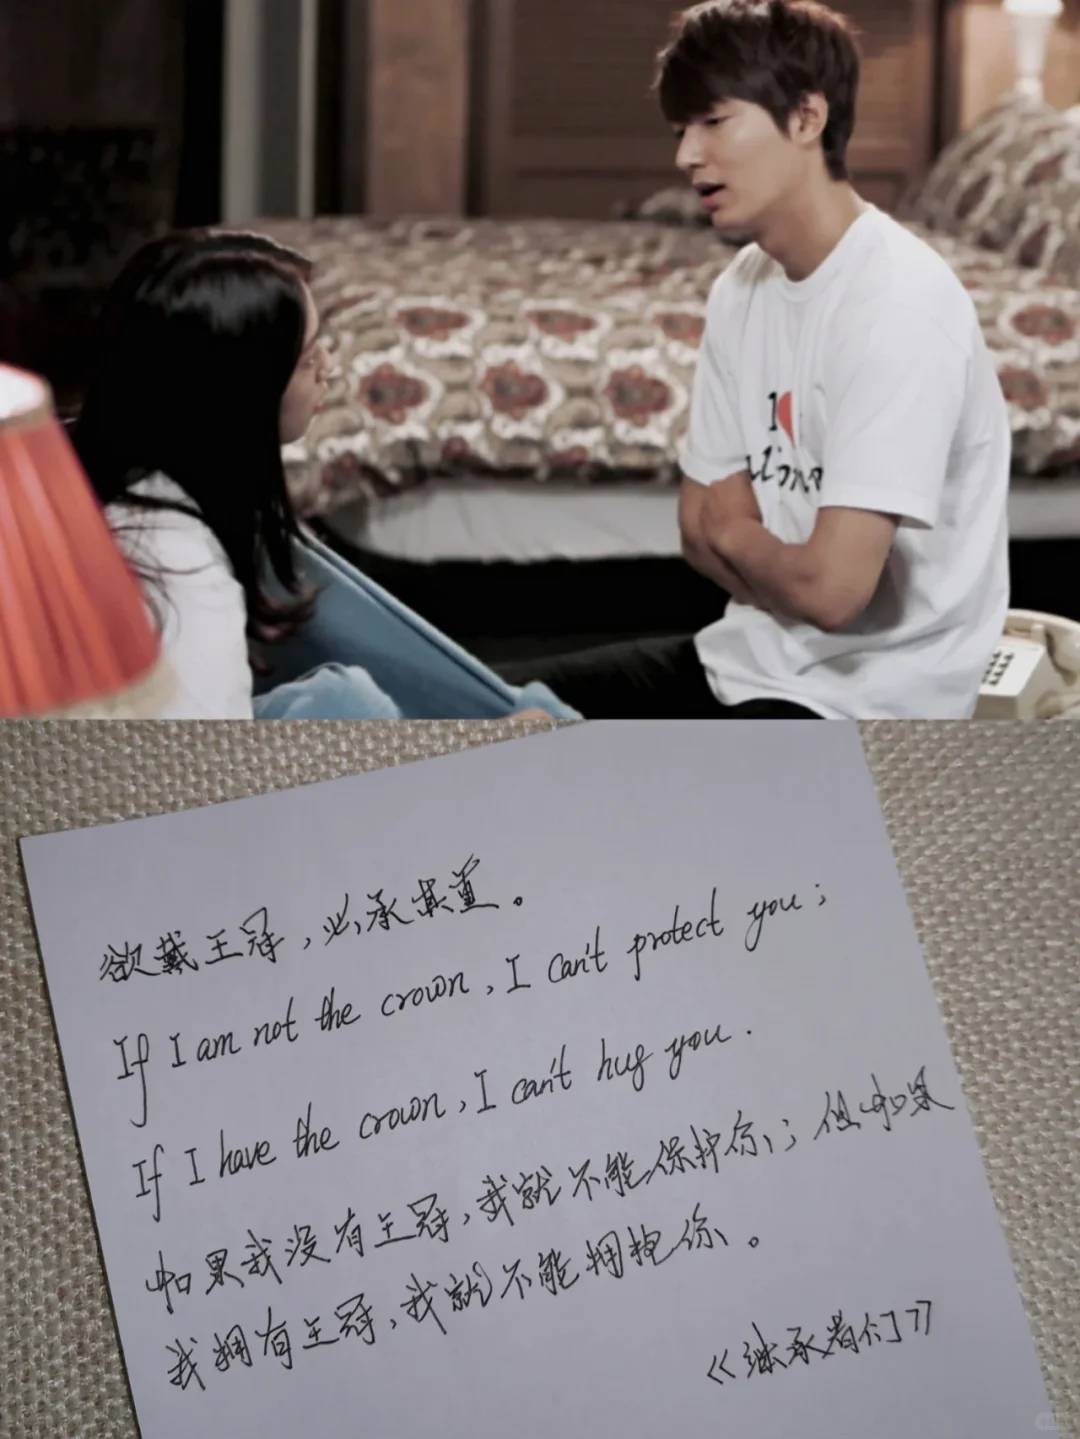 I
欲戴王冠，必承其重。
If I am not the crown, I can't protect you;
If I have the crown, I can't hug you.
如果我没有王冠，我就不能保护你；但如果
我拥有王冠，我就不能拥抱你。
《继承者们》